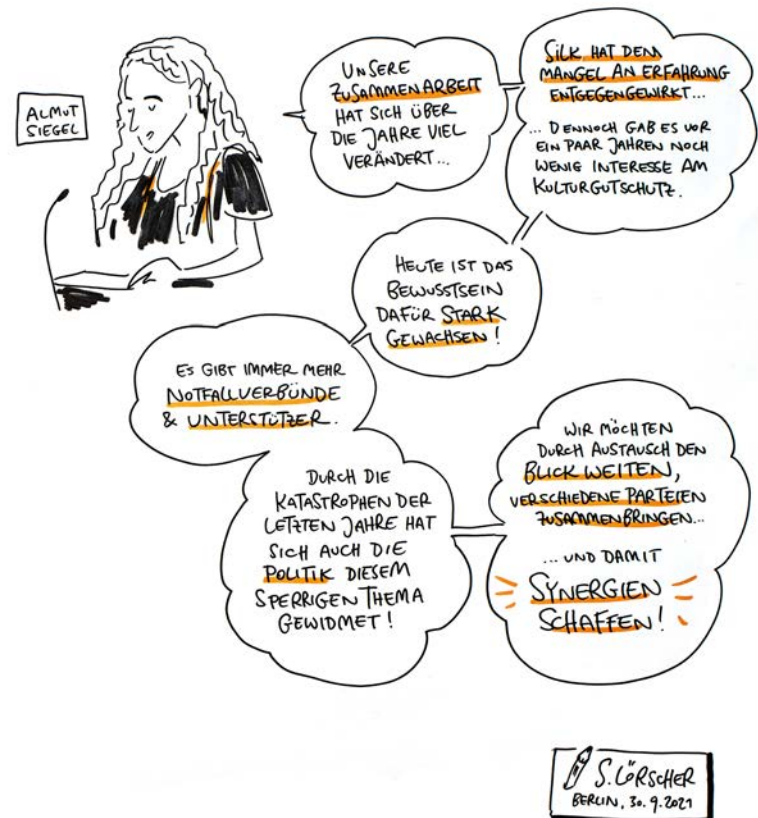 ALMUT
SIEGEL
UNSERE
ZUSAMMENARBEIT
HAT SICH ÜBER
DIE JAHRE VIEL
VERÄNDERT...
SILK HAT DEM
MANGEL AN ERFAHRUNG
ENTGEGENGEWIRKT...
... DENNOCH GAB ES VOR
EIN PAAR JAHREN NOCH
WENIG INTERESSE AM
KULTURGUTSCHUTZ.
HEUTE IST DAS
BEWUSSTSEIN
DAFÜR STARK
GEWACHSEN!
ES GIBT IMMER MEHR
NOTFALLVERBÜNDE
& UNTERSTÜTZER.
DURCH DIE
KATASTROPHEN DER
LETZTEN JAHRE HAT
SICH AUCH DIE
POLITIK DIESEM
SPERRIGEN THEMA
GEWIDMET!
WIR MÖCHTEN
DURCH AUSTAUSCH DEN
BLICK WEITEN,
VERSCHIEDENE PARTEIEN
ZUSAMMENBRINGEN...
... UND DAMIT
SYNERGIEN
SCHAFFEN!
S. LÖRSCHER
BERLIN, 30.9.2021